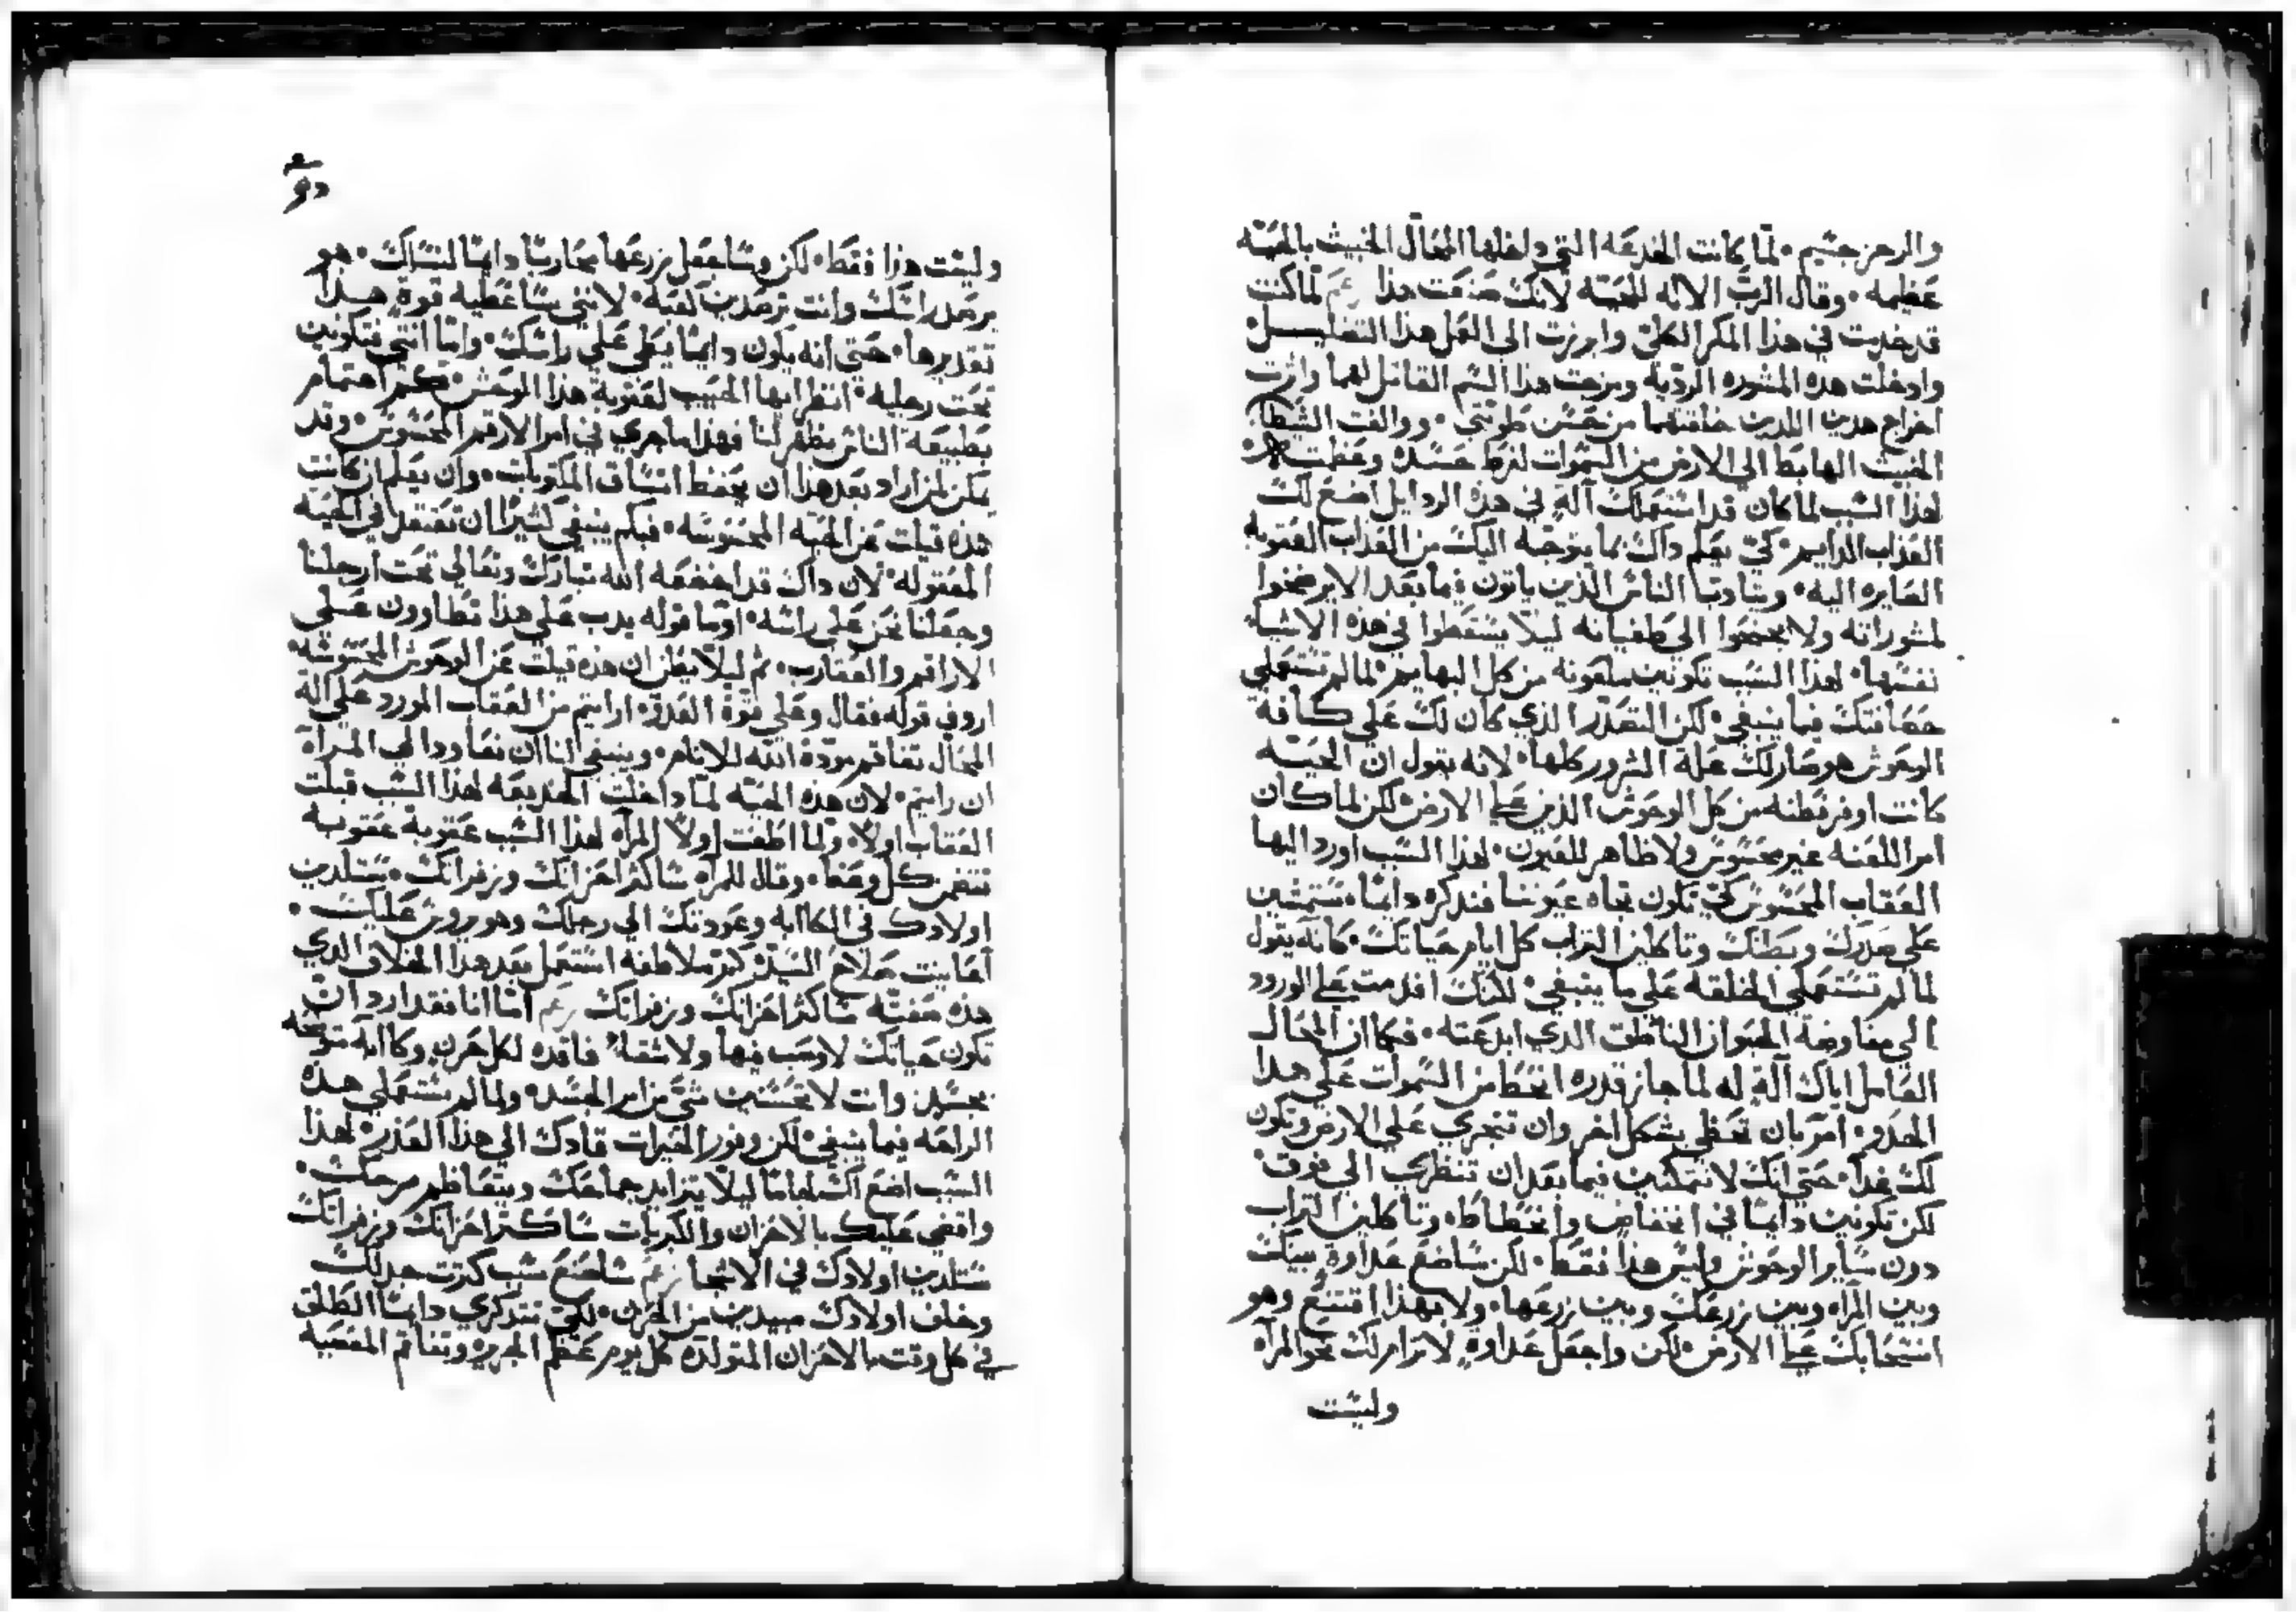 والرجز جسيم ٠ لما كانت الخدعه التي داخلها المحال الخبيث بالحيه
عظيمه ٠ وقال الرب الاله للحيه لانك صنعت هذا زعم لما كنت
قد خدمت في هذا المكر الكلي وابرزت الي العمل هذا التضليل
وادخلت هذه المشوره الرديه ومزجت هذا السم القاتل لهما واثرت
اخراج هذين اللذين خلقتهما من حسن طويتي ٠ ووالفت الشيطان
الخبيث الهابط الي الارض من السموات لفرط حسده وعظمته
لهذا السبب لما كان قد استعملك آلة في هذه الردايل اضع لك
العذاب الدايم ٠ كي يعلم داك بما يتوجه اليك من العذاب العقوبه
الصايره اليه ٠ ويتادبا الناس الذين ياتون فيما بعد الا يرضخوا
لمشوراته ولا يخضعوا الي طغيانه ليلا يسقطوا في هذه الاشيا
نفسها ٠ لهذا السبب تكونين ملعونه من كل البهايم ٠ لما لم تستعملي
حصافتك فيما ينبغي ٠ لكن التصدر الذي كان لك علي كافة
الوحوش هو صار لك علة الشرور كلها ٠ لانه يقول ان الحيه
كانت اوفر فطنه من كل الوحوش الذين علي الارض ٠ لكن لما كان
امر اللعنه غير محسوس ولا ظاهر للعيون ٠ لهذا السبب اورد اليها
العقاب المحسوس كي تكون تجاه عيوننا فنذكره دايما ٠ ستمشين
علي صدرك وبطنك وتاكلين التراب كل ايام حياتك ٠ كانه يقول
لما لم تستعملي الخلقه علي ما ينبغي ٠ لكنك اقدمت علي الورود
الي مفاوضة الحيوان الناطق الذي ابدعته ٠ فكما ان المحال
العامل اياك آلة له لما جاز قدره انحط من السموات علي هذا
الحذو ٠ آمر بان تحظي بشكل اخر وان تنجري علي الارض وتكون
لك غدا ٠ حتي انك لا تتمكنين فيما بعد ان تنظري الي فوق
لكن تكونين دايما في انخفاض وانحطاط ٠ وتاكلين التراب
دون ساير الوحوش وليس هذا فقط ٠ لكن ساضع عداوة بينك
وبين المرآه وبين زرعك وبين زرعها ٠ ولا بهذا اقتنع وهو
انسحابك علي الارض ٠ لكن واجعل عداوة لا ترام لك نحو المرآه
وليست
وليست هذا فقط ٠ لكن وساجعل زرعها محاربا دايما لنسلك ٠ هو
يرصد راسك وانت ترصدين كعبه ٠ لانني ساعطيه قوة هذا
تقديرها ٠ حتي انه يكون دايما يطي علي راسك ٠ واما انتي فتكونين
تحت رجليه ٠ انظر ايها الحبيب لعقوبة هذا الوحش كم اهتمام
بطبيعة الناس يظهر لنا فهذا ما جري في امر الارقم المحسوس ٠ وقد
يمكن لمن اراد بعد هذا ان يحفظ انساق المكتوبات ٠ وان يعلم ان كانت
هذه قيلت عن الحيه المحسوسه ٠ فبكم ينبغي كثيرا ان تعتقد في الحيه
المعقوله ٠ لان داك قد اخضعه الله تبارك وتعالي تحت ارجلنا
وجعلنا نحن علي راسه ٠ اوما قوله يدب علي هذا تطاوون علي
الاراقم والعقارب ٠ ثم ليلا يظن ان هذه قيلت عن الوحوش المحسوسه
اردف قوله فقال وعلي قوة العدو ٠ ارايتم من العقاب المورد علي الة
المحال تفاقم مودة الله للانام ٠ وينبغي لنا ان نعاود الي المرآة
ان رايتم ٠ لان هذه الحيه لما داخلت الخديعه لهذا السبب قبلت
العقاب اولا ٠ ولما اطغت اولا المرآه لهذا السبب عقوبة عقوبه
تتضمن كل وعظ ٠ وقال للمرآه ساكثر احزانك وزفراتك ٠ ستلدين
اولادك في الكاابه وعودتك الي رجلك وهو يروس عليك ٠
اعاينت صلاح السيد ٠ كم ملاطفه استعمل بعد هذا الخلاف الذي
هذه صفته ساكثر احزانك وزفراتك زعم اما انا فقد اردت ان
تكون حياتك لا وصب فيها ولا شقا ٠ فاقده لكل حزن وكاابه متوجحه
بجسد وانت لا تحسين شي من امر الجسد ٠ ولما لم تستعملي هذه
الراحه فيما ينبغي لكن وفور الخيرات قادك الي هذا القدر ٠ لهذا
السبب اضع لك لجاما ليلا يتزايد جماحك ويتعاظم مرحك ٠
واقضي عليك بالاحزان والكربات ساكثر احزانك وزفراتك
ستلدين اولادك في الاشجا زعم ساضع سبب كثرت جدلك
وخلف اولادك مبيدين من الحزن ٠ لكي تتذكري دايما الطلق
في كل وقت بالاحزان المتولده كل يوم عظم الجرم وتفاقم المعصيه